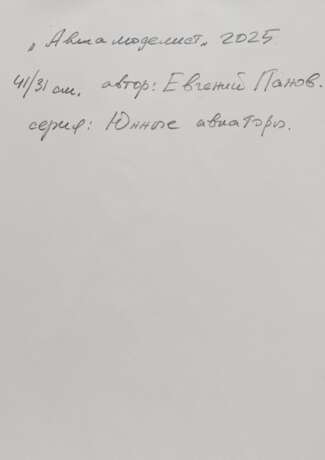 „Авиамоделист„ 2025
41/31 см. автор: Евгений Панов.
серия: Юнные авиаторы.